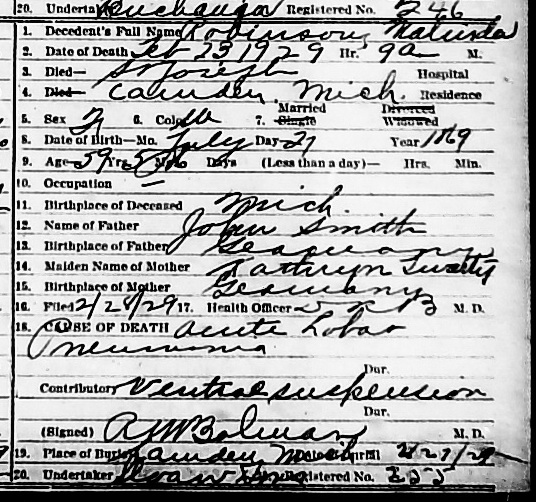 20. Undertaker Buchanan Registered No. 246
1. Decedent's Full Name Robinson, Malinda
2. Date of Death Feb 23 1929 Hr. 9 a M.
3. Died— St Joseph Hospital
4. Died— Camden Mich Residence
5. Sex F 6. Color W 7. Married Single Divorced Widowed
8. Date of Birth—Mo. July Day 27 Year 1869
9. Age 59 Yrs 5 Mo Days (Less than a day)— Hrs. Min.
10. Occupation —
11. Birthplace of Deceased Mich
12. Name of Father John Smith
13. Birthplace of Father Germany
14. Maiden Name of Mother Kathryn
15. Birthplace of Mother Germany
16. Filed 2/28/29 17. Health Officer M. D.
18. CAUSE OF DEATH Acute Lobar
Pneumonia
Dur.
Contributory Ventral suspension
Dur.
(Signed) M. D.
19. Place of Burial Camden Mich Date of Burial 2/27/29
20. Undertaker Registered No.